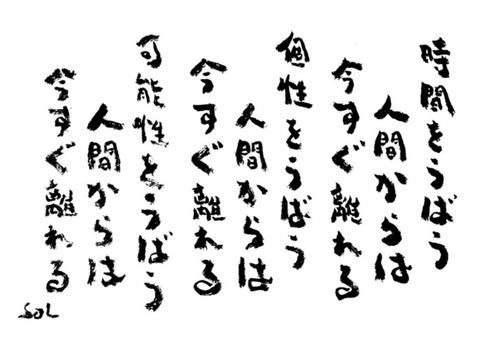 時間をうばう
人間からは
今すぐ離れる
個性をうばう
人間からは
今すぐ離れる
可能性をうばう
人間からは
今すぐ離れる
SOL